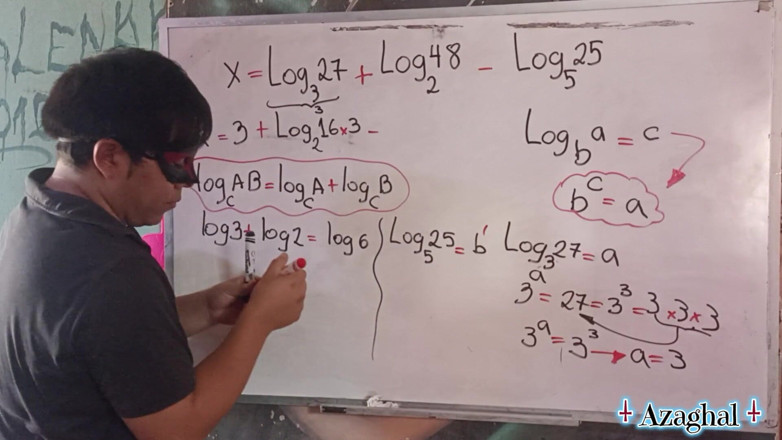 ALENK
X = Log₃27 + Log₂48 - Log₅25
3
= 3 + Log₂16×3 -
Log_b a = c
b^c = a
log_c AB = log_c A + log_c B
log3 + log2 = log6
Log₅25 = b
Log₃27 = a
3^a = 27 = 3³ = 3×3×3
3^a = 3³ → a = 3
Azaghal